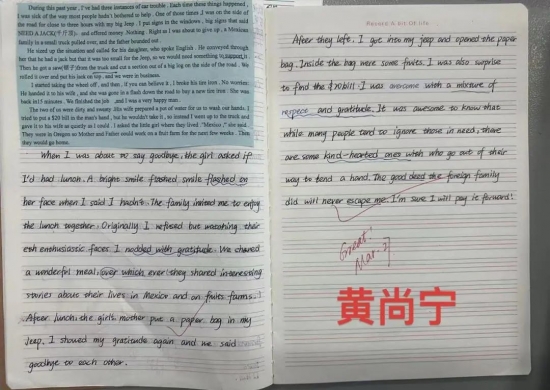 During this past year, I've had three instances of car trouble. Each time these things happened, I
was sick of the way most people hadn't bothered to help. One of those times I was on the side of
the road for close to three hours with my big Jeep. I put signs in the windows, big signs that said
NEED A JACK(千斤顶), and offered money. Nothing. Right as I was about to give up, a Mexican
family in a small truck pulled over, and the father bounded out.
He sized up the situation and called for his daughter, who spoke English. He conveyed through
her that he had a jack but that it was too small for the Jeep, so we would need something to support it.
Then he got a saw from the truck and cut a section out of a big log on the side of the road. We
rolled it over and put his jack on top, and we were in business.
I started taking the wheel off, and then, if you can believe it, I broke his tire iron. No worries:
He handed it to his wife, and she was gone in a flash down the road to buy a new tire iron. She was
back in 15 minutes. We finished the job, and I was a very happy man.
The two of us were dirty and sweaty. His wife prepared a pot of water for us to wash our hands. I
tried to put a $20 bill in the man's hand, but he wouldn't take it, so instead I went up to the truck and
gave it to his wife as quietly as I could. I asked the little girl where they lived. "Mexico," she said.
They were in Oregon so Mother and Father could work on a fruit farm for the next few weeks. Then
they would go home.
When I was about to say goodbye, the girl asked if
I'd had lunch. A bright smile flashed smile flashed on
her face when I said I hadn't. The family invited me to enjoy
the lunch together. Originally I refused but watching their
enthusiastic faces I nodded with gratitude. We shared
a wonderful meal, over which ever they shared interesting
stories about their lives in Mexico and on fruits farms.
After lunch, the girl's mother put a paper bag in my
Jeep. I showed my gratitude again and we said
goodbye to each other.
After they left, I got into my jeep and opened the paper
bag. Inside the bag were some fruits. I was also surprise
to find the $20 bill. I was overcome with a mixture of
respect and gratitude. It was awesome to know that
while many people tend to ignore those in need, there
are some kind-hearted ones who go out of their
way to lend a hand. The good deed the foreign family
did will never escape me. I'm sure I will pay it forward!
Great!
Mar. 27
黄尚宁